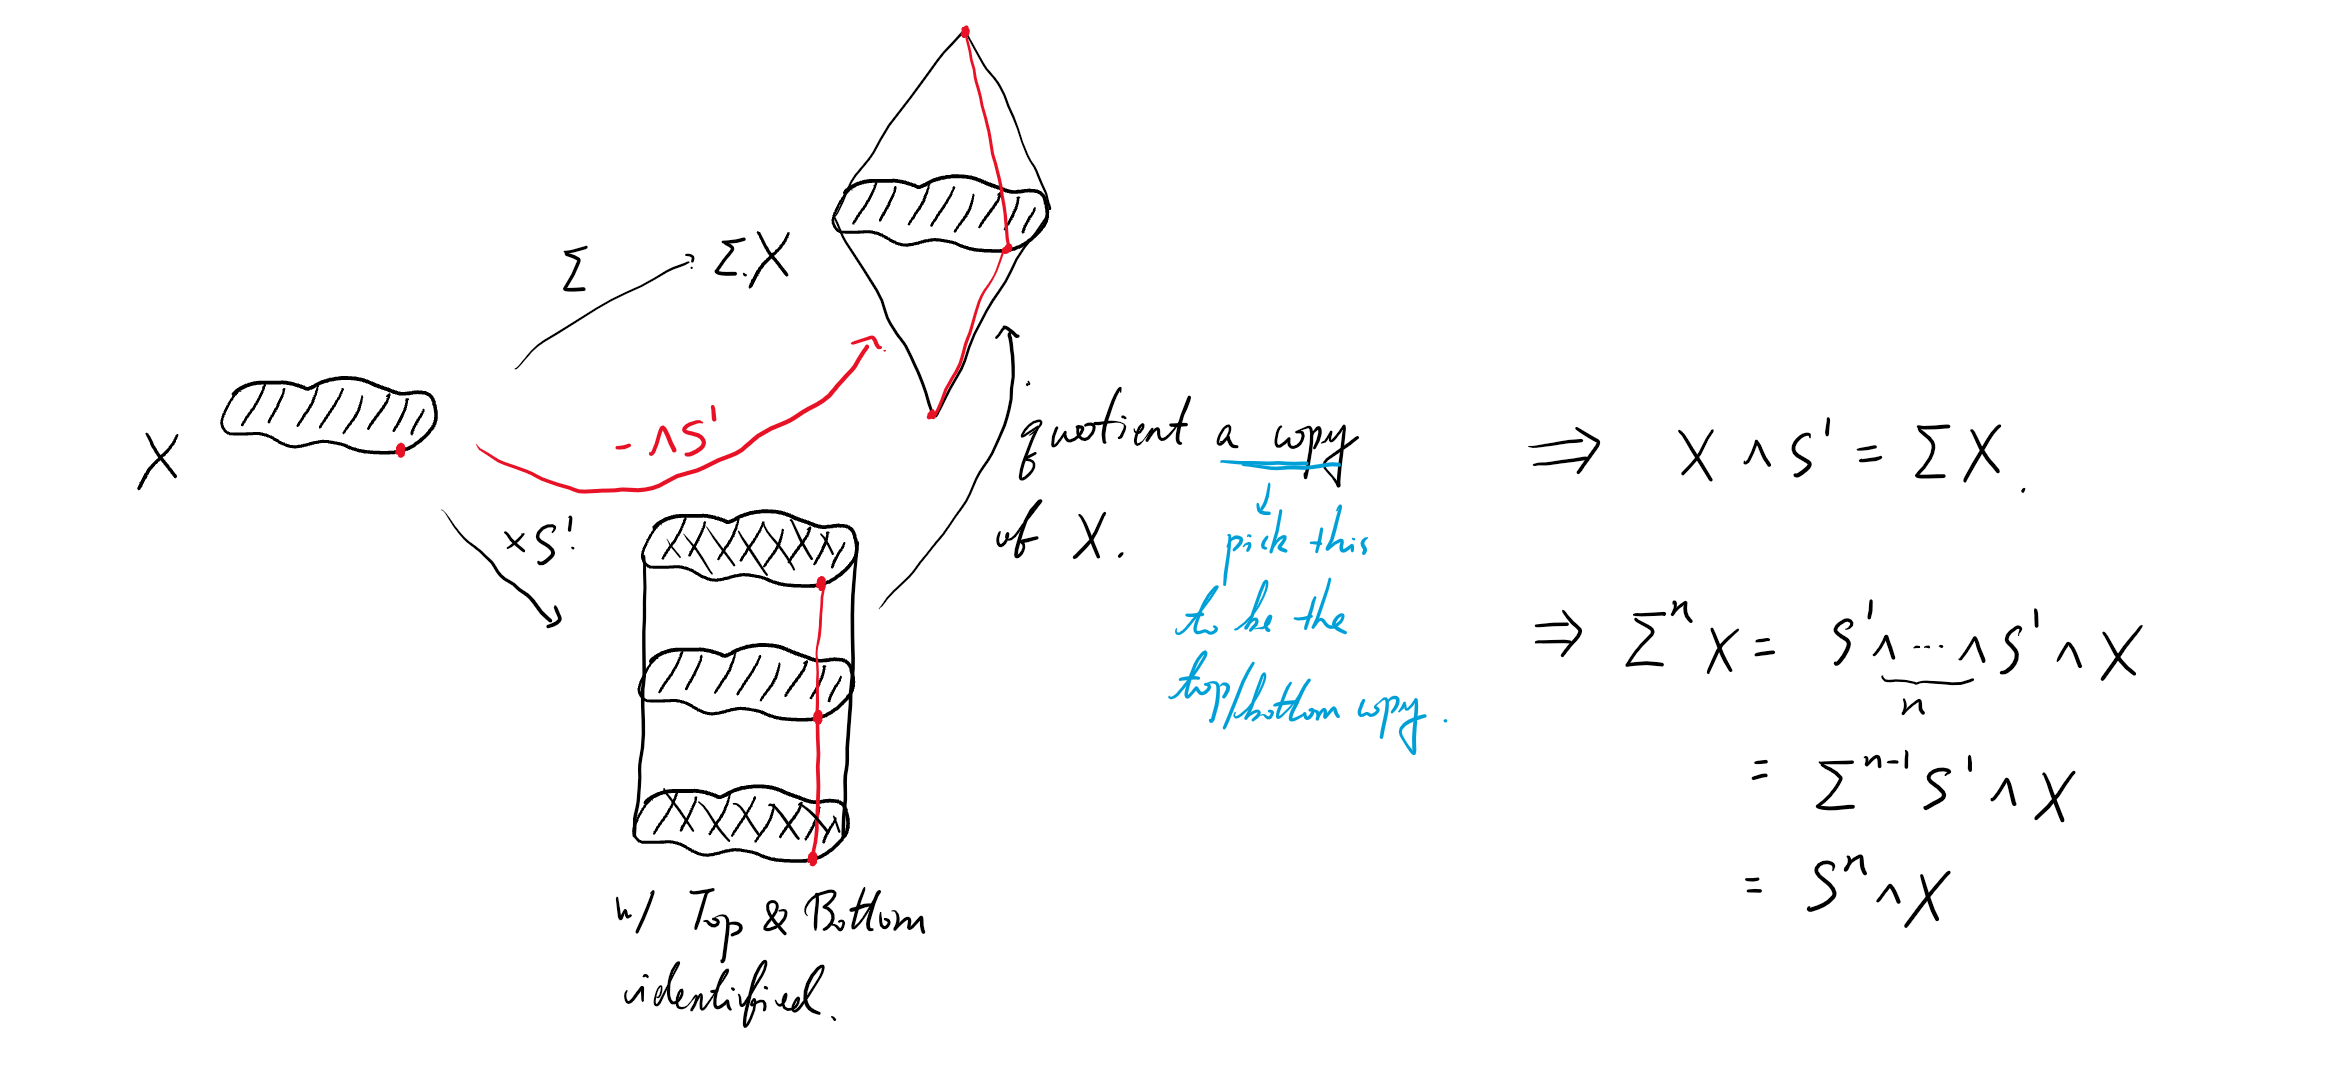 Σ
ΣX
X
- ∧S¹
×S¹
quotient a copy
of X.
pick this
to be the
top/bottom copy.
w/ Top & Bottom
identified.
⇒ X ∧ S¹ = ΣX.
⇒ Σⁿ X = S¹ ∧ ··· ∧ S¹ ∧ X
n
= Σⁿ⁻¹ S¹ ∧ X
= Sⁿ ∧ X